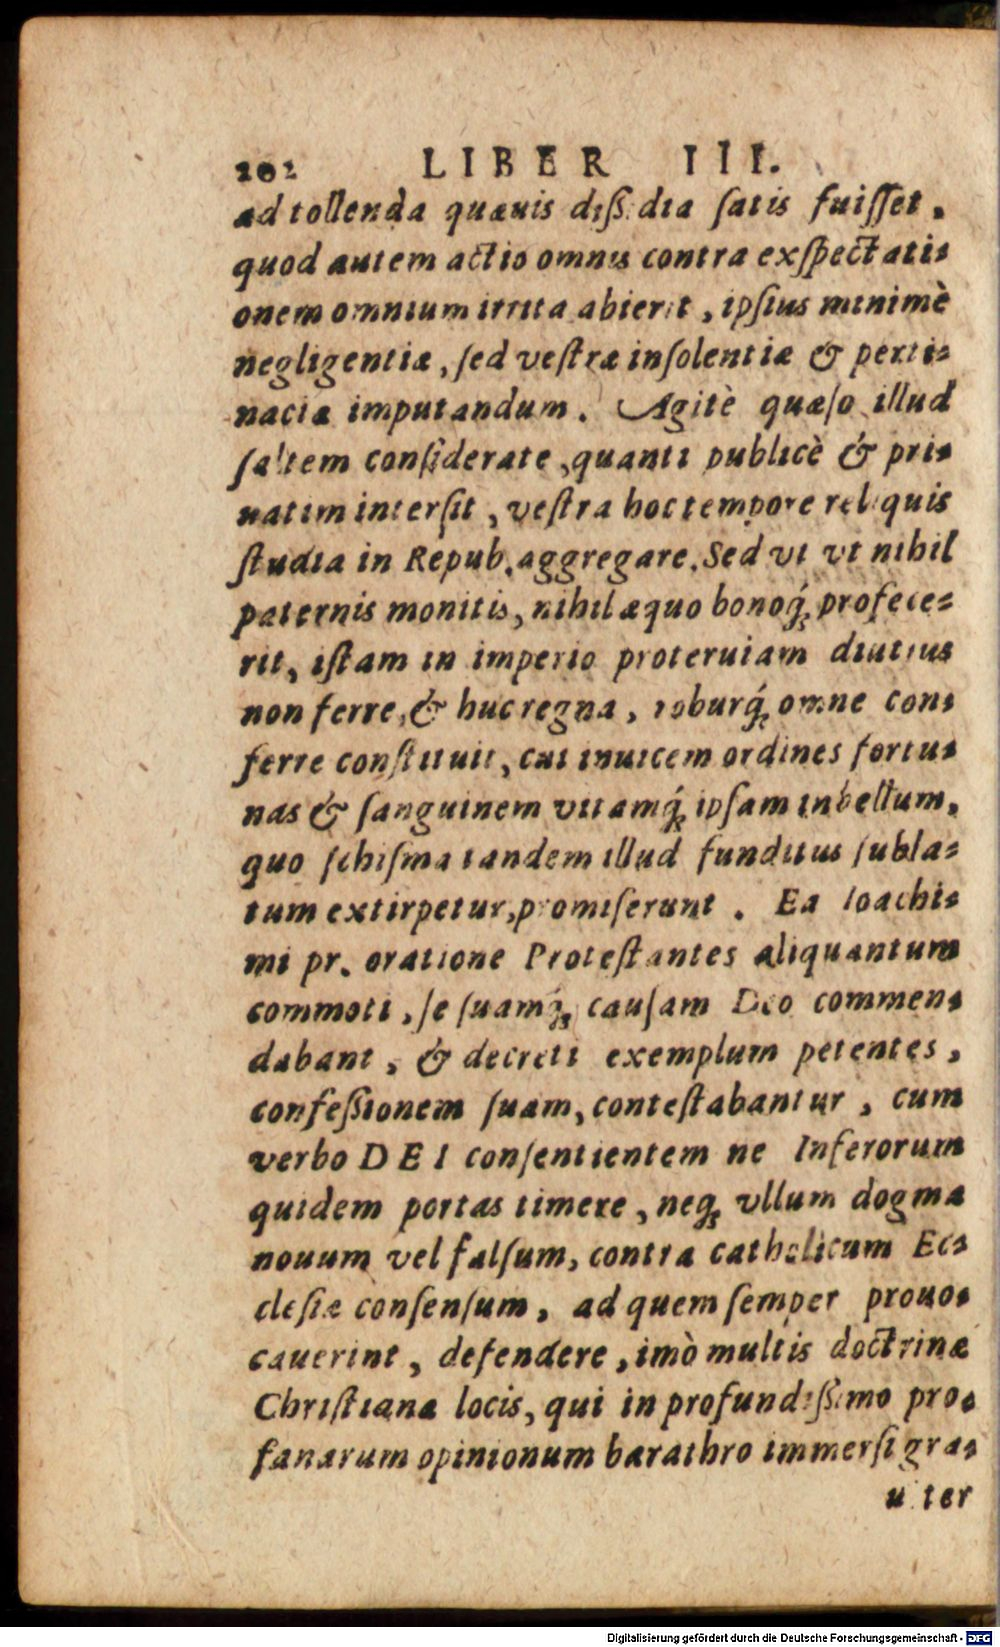 202 LIBER III.
ad tollenda quæuis diſſidia ſatis fuiſſet,
quod autem actio omnis contra exſpectati=
onem omnium irrita abierit, ipſius minimè
negligentiæ, ſed veſtræ inſolentiæ & perti=
naciæ imputandum. Agitè quæſo illud
ſaltem conſiderate, quanti publicè & pri=
uatim interſit, veſtra hoc tempore reliquis
ſtudia in Repub. aggregare. Sed vt vt nihil
paternis monitis, nihil æquo bonoq́; profece=
rit, iſtam in imperio proteruiam diutius
non ferre, & huc regna, roburq́; omne con=
ferre conſtituit, cui inuicem ordines fortu=
nas & ſanguinem vitamq́; ipſam in bellum,
quo ſchiſma tandem illud funditus ſubla=
tum extirpetur, promiſerunt. Ea Ioachi=
mi pr. oratione Proteſtantes aliquantum
commoti, ſe ſuamq́; cauſam Deo commen=
dabant, & decreti exemplum petentes,
confeſſionem ſuam, conteſtabantur, cum
verbo DEI conſentientem ne Inferorum
quidem portas timere, neq; vllum dogma
nouum vel falſum, contra catholicum Ec=
cleſiæ conſenſum, ad quem ſemper prouo=
cauerint, defendere, imò multis doctrinæ
Chriſtianæ locis, qui in profundiſſimo pro=
fanarum opinionum barathro immerſi gra=
uiter
Digitalisierung gefördert durch die Deutsche Forschungsgemeinschaft - DFG